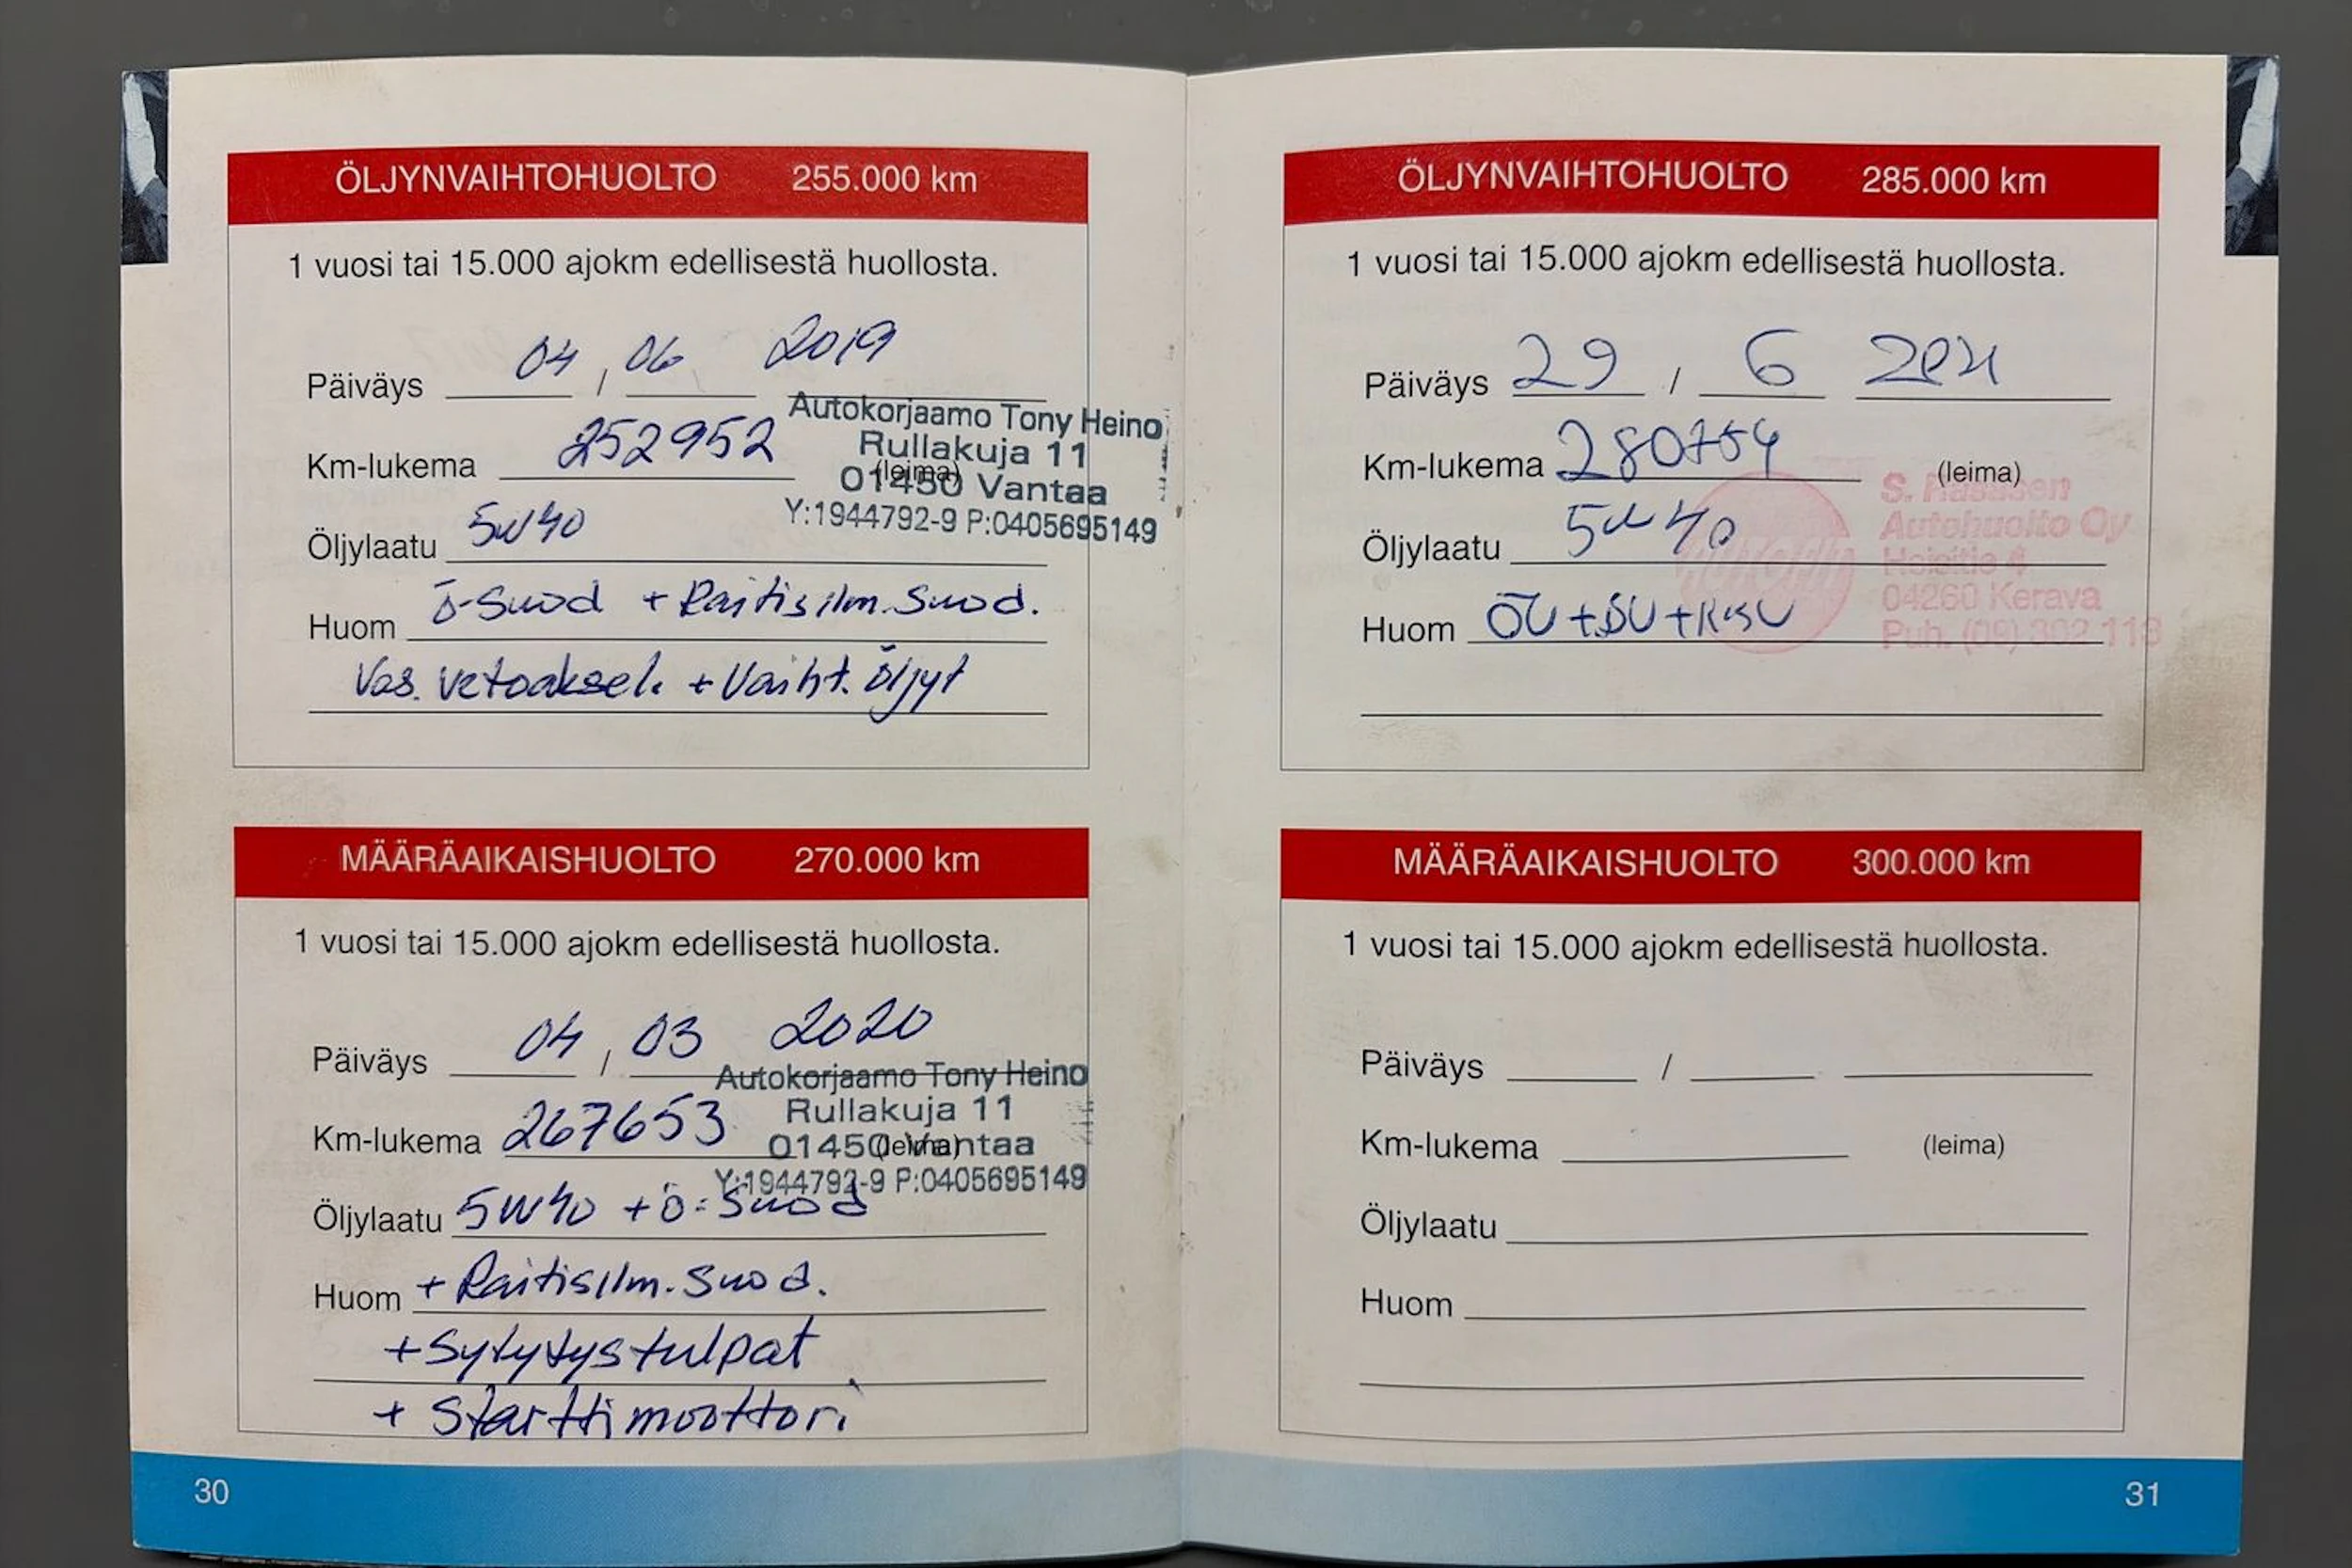 ÖLJYNVAIHTOHUOLTO 255.000 km
1 vuosi tai 15.000 ajokm edellisestä huollosta.
Päiväys 04 / 06 2019
Autokorjaamo Tony Heino
Rullakuja 11
Km-lukema 252952 (leima)
01450 Vantaa
Y:1944792-9 P:0405695149
Öljylaatu 5W40
Huom ö-Suod + Raitisilm.Suod.
Vas. vetoakseli + Vaiht. öljyt
MÄÄRÄAIKAISHUOLTO 270.000 km
1 vuosi tai 15.000 ajokm edellisestä huollosta.
Päiväys 04 / 03 2020
Autokorjaamo Tony Heino
Rullakuja 11
Km-lukema 267653 (leima)
01450 Vantaa
Y:1944792-9 P:0405695149
Öljylaatu 5W40 + ö-Suod
Huom + Raitisilm.Suod.
+Sytytystulpat
+ Starttimoottori
30
ÖLJYNVAIHTOHUOLTO 285.000 km
1 vuosi tai 15.000 ajokm edellisestä huollosta.
Päiväys 29 / 6 2021
Km-lukema 280754 (leima)
S.
Autohuolto Oy
Öljylaatu 5W40
04260 Kerava
Huom ÖV+
Puh. (09)
MÄÄRÄAIKAISHUOLTO 300.000 km
1 vuosi tai 15.000 ajokm edellisestä huollosta.
Päiväys /
Km-lukema (leima)
Öljylaatu
Huom
31